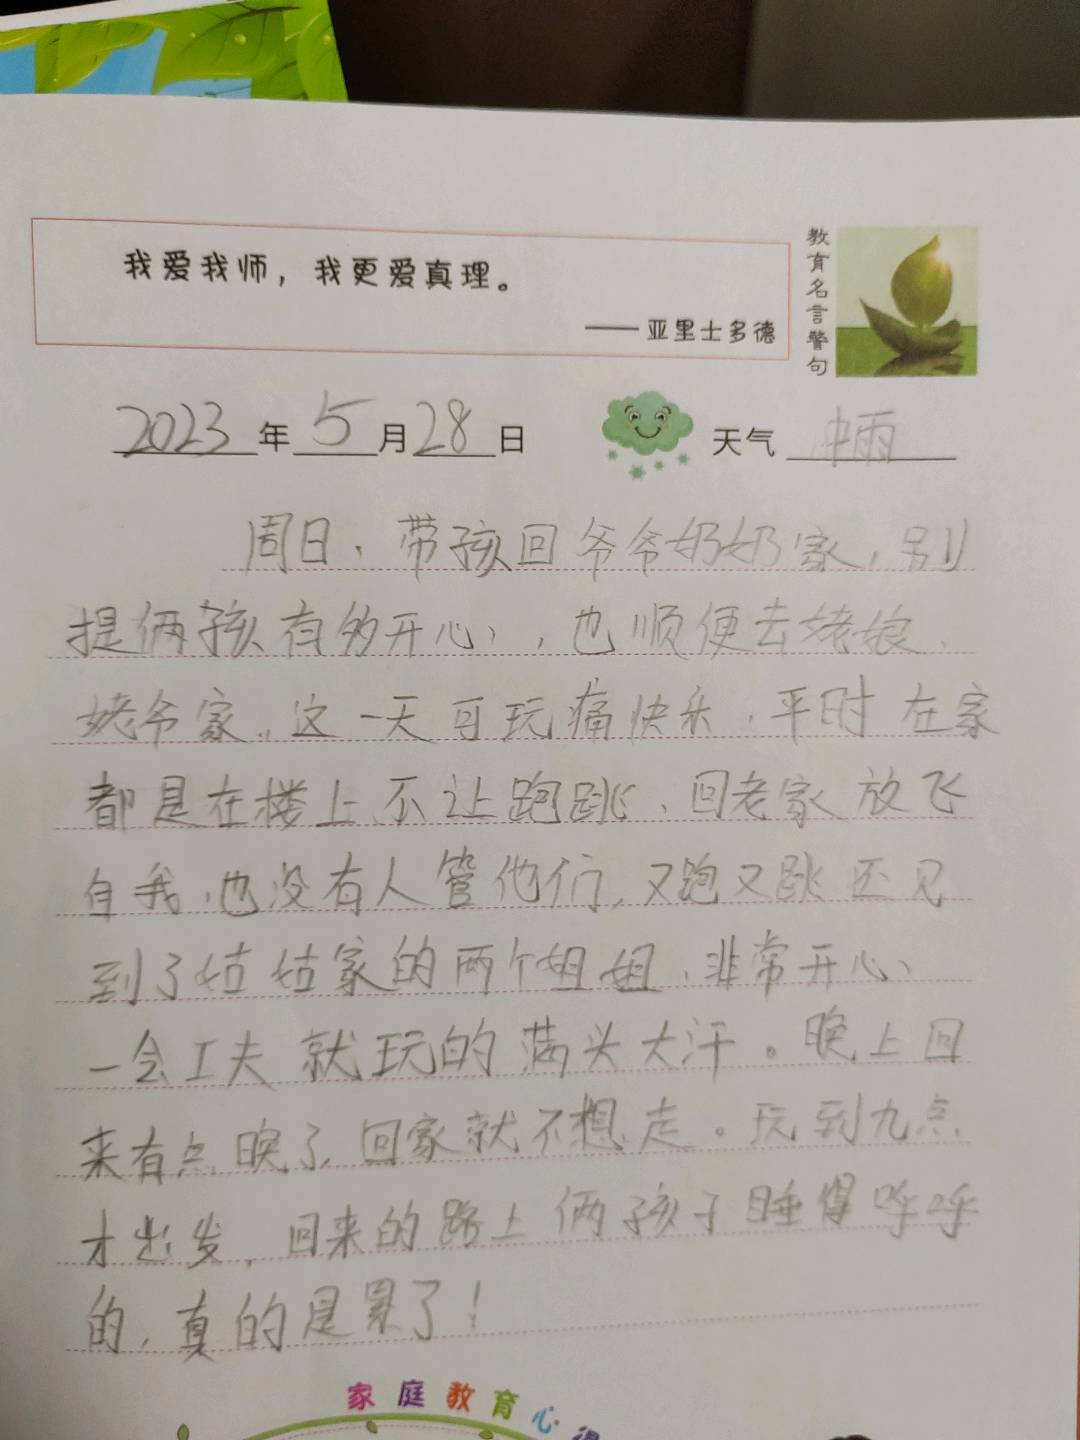 我爱我师，我更爱真理。
——亚里士多德
教育名言警句
2023年5月28日 天气 中雨
周日，带孩回爷爷奶奶家，别
提俩孩有多开心，也顺便去姥娘、
姥爷家。这一天可玩痛快乐，平时在家
都是在楼上不让跑跳，回老家放飞
自我，也没有人管他们，又跑又跳还见
到了姑姑家的两个姐姐，非常开心，
一会工夫就玩的满头大汗。晚上回
来有点晚了，回家就不想走。玩到九点
才出发，回来的路上俩孩子睡得呼呼
的，真的是累了！
家庭教育心得